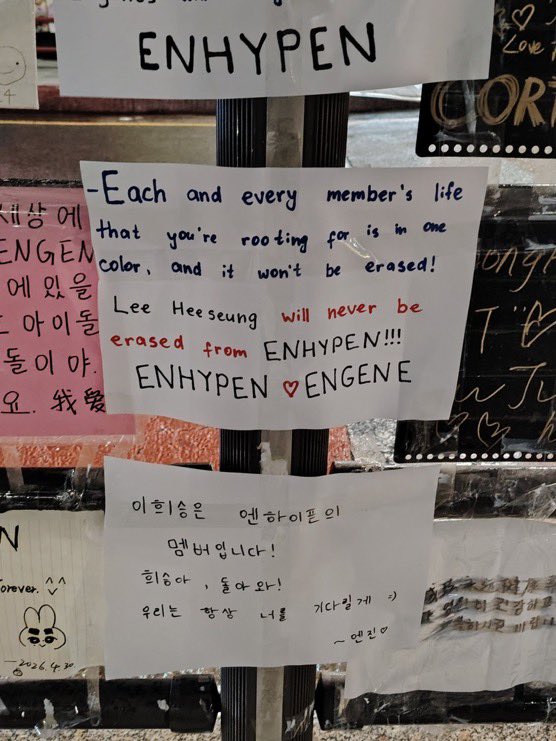 ENHYPEN
Love
COR
-Each and every member's life
that you're rooting for is in one
color, and it won't be erased!
Lee Heeseung will never be
erased from ENHYPEN!!!
ENHYPEN ♡ ENGENE
세상에
ENGEN
에 있을
아이돌
돌이야.
요. 我爱
이희승은 엔하이픈의
멤버입니다!
희승아, 돌아와!
우리는 항상 너를 기다릴게 :)
~엔진♡
N
Forever. ^^
2026.4.30